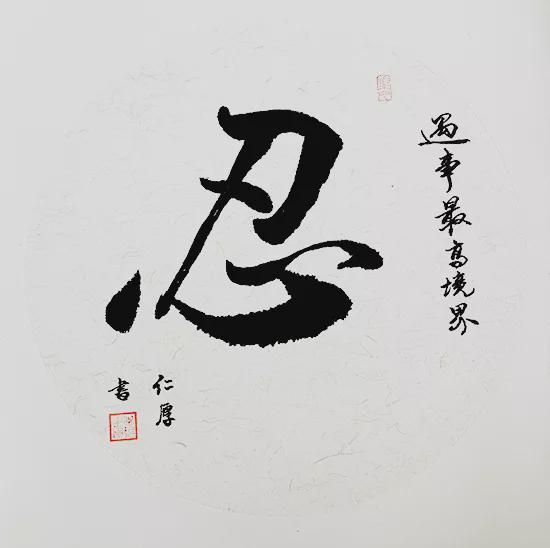 遇事最高境界
忍
仁厚
书